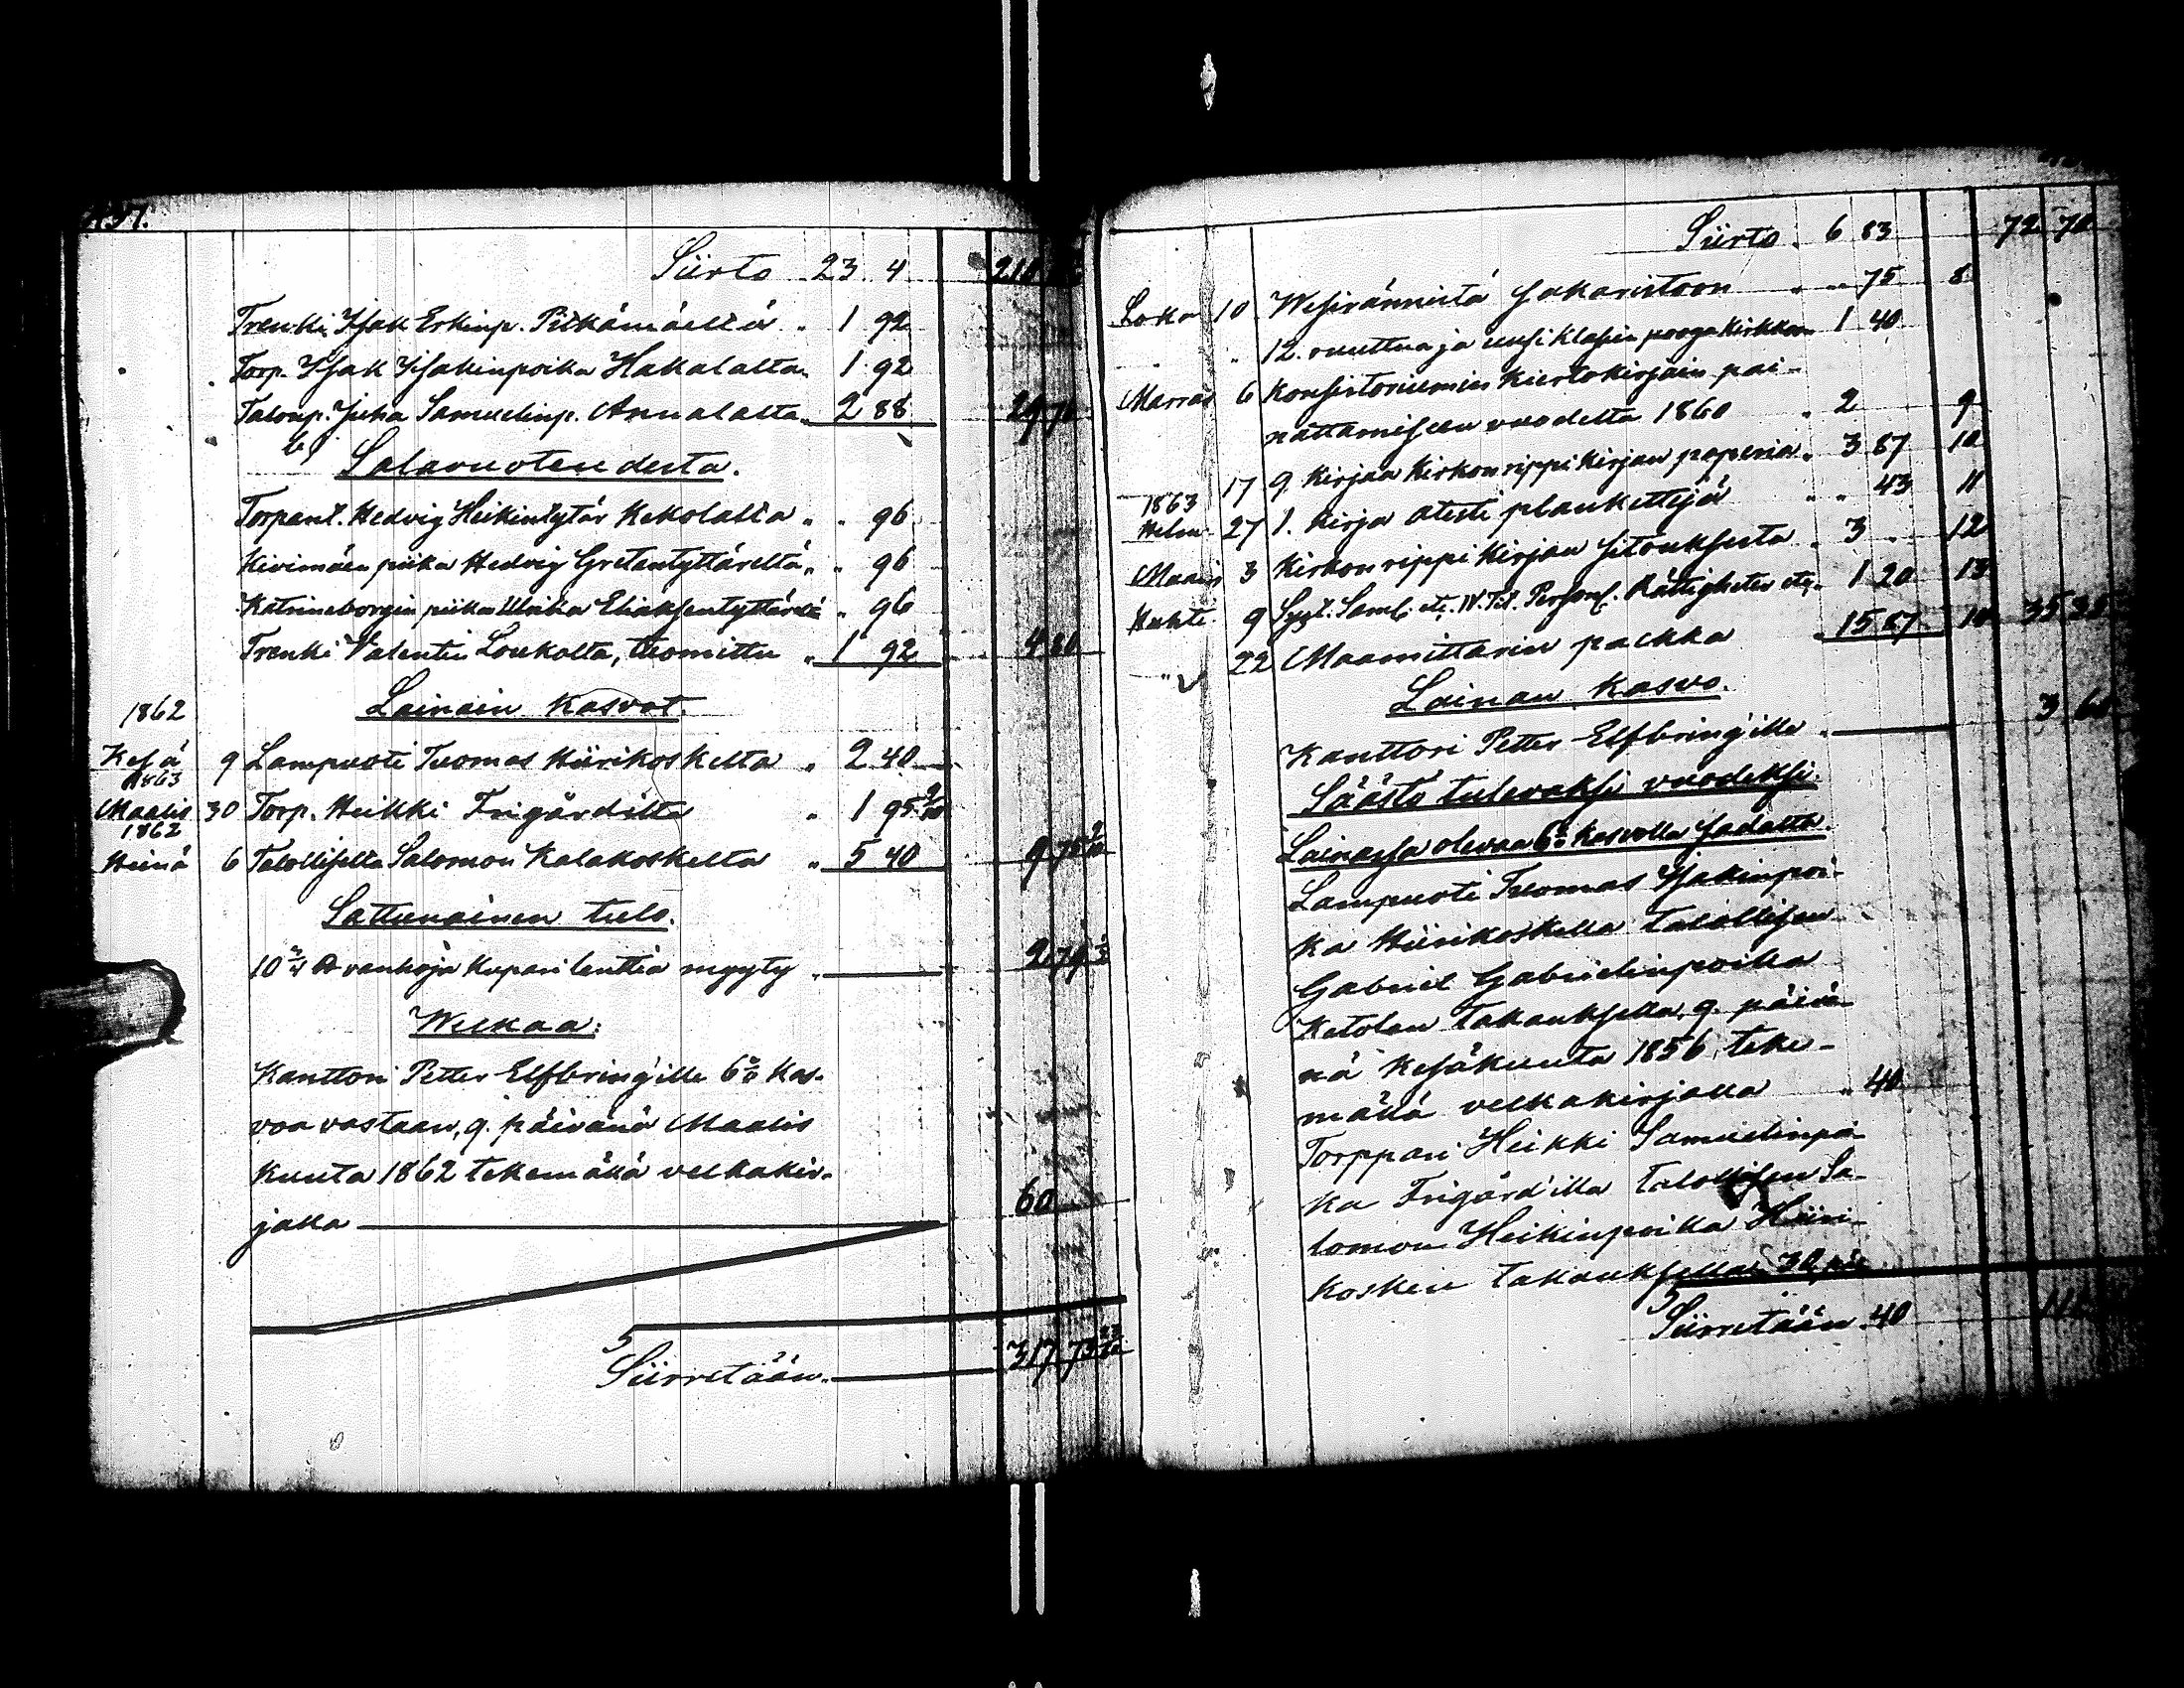 137.
Siirto 23 4 210
Trenki Isak Erkinp. Pitkämäeltä " 1 92
Torp. Isak Isakinpoika Hakalalta " 1 92
Talonp. Juha Samuelinp. Annalalta " 2 88 29 76
b)
Salavuoteudesta.
Torpant. Hedvig Heikintytär Kekolalta " " 96
Kivimäen piika Hedvig Gretantyttäreltä " " 96
Katrineborgin piika Ulrika Eliaksentyttäreltä " 96
Trenki Valentin Loukolta, tuomittu " 1 92 4 80
1862 Lainain Kasvot.
Kesä 9 Lampuoti Tuomas Hiirikoskelta " 2 40
1863
Maalis 30 Torp. Heikki Frigårdilta " 1 95 9/10
1862
Heinä 6 Talolliselta Salomon Kalakoskelta " 5 40 9 75 9/10
Sattunainen tulo.
10 3/4 ℔ vanhoja kupari lenttiä myyty " 2 79
Welkaa:
Kanttori Petter Elfbring'ille 6% Kas-
voa vastaan, 9. päivänä Maalis
kuuta 1862 tekemällä velkakir-
jalla 60
Siirretään " 317 73
Siirto " 6 83 72 70
Loka 10 Wesirännistä sakaristoon " " 75 8
" 12. ruuttua ja uusi klasin pooga kirkkoon 1 40
Marras 6 Konsistoriumin kiertokirjain pai-
nattamiseen vuodelta 1860 " 2 9
17 9 kirjaa kirkonrippikirjan paperia " 3 87 10
1863
Helm. 27 1. kirja atesti plankettejä " " 43 11
Maalis 3 Kirkonrippikirjan sitouksesta " 3 " 12
Huhti 9 Syst. Saml. etc. IV. Tit. Personl. Rättigheter etc. 1 20 13
" 22 Maamittarin palkka 15 87 14 35 35
Lainan kasvo.
Kanttori Petter Elfbring'ille " 3 60
Säästö tulevaksi vuodeksi.
Lainassa olevaa 6% kasvolla sadalta.
Lampuoti Tuomas Isakinpoi-
ka Hiirikoskella talollisen
Gabriel Gabrielinpoika
Ketolan takauksella, 9. päivä-
nä Kesäkuuta 1856 teke-
mällä velkakirjalla " 40
Torppari Heikki Samuelinpoi-
ka Frigård'illa talollisen Sa-
lomon Heikinpoika Hiiri-
kosken takauksella 30 päi-
Siirretään " 40 111